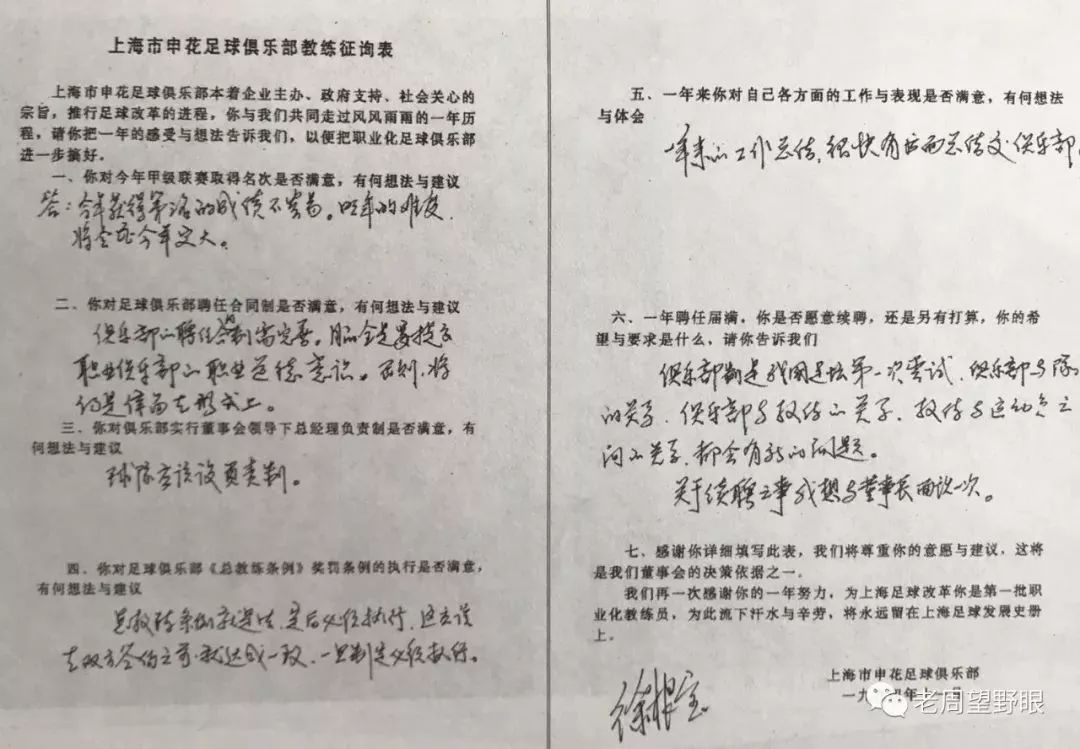 上海市申花足球俱乐部教练征询表
上海市申花足球俱乐部本着企业主办、政府支持、社会关心的
宗旨，推行足球改革的进程，你与我们共同走过风风雨雨的一年历
程，请你把一年的感受与想法告诉我们，以便把职业化足球俱乐部
进一步搞好。
一、你对今年甲级联赛取得名次是否满意，有何想法与建议
答：今年获得第三名的成绩不容易。明年的难度，
将会比今年更大。
二、你对足球俱乐部聘任合同制是否满意，有何想法与建议
俱乐部的聘任合同制需完善。
职业俱乐部的职业道德意识。否则，将
仍是停留在形式上。
三、你对俱乐部实行董事会领导下总经理负责制是否满意，有
何想法与建议
球队应该设负责制。
四、你对足球俱乐部《总教练条例》奖罚条例的执行是否满意，
有何想法与建议
总教练条例就是法，定后必须执行，这应该
在双方签约之前就达成一致，一旦制定必须执行。
五、一年来你对自己各方面的工作与表现是否满意，有何想法
与体会
一年来的工作总结，很快有书面总结交俱乐部。
六、一年聘任届满，你是否愿意续聘，还是另有打算，你的希
望与要求是什么，请你告诉我们
俱乐部制是我国足坛第一次尝试，俱乐部与队
的关系，俱乐部与教练的关系，教练与运动员之
间的关系，都会有新的问题。
关于续聘之事我想与董事长面谈一次。
七、感谢你详细填写此表，我们将尊重你的意愿与建议，这将
是我们董事会的决策依据之一．
我们再一次感谢你的一年努力，为上海足球改革你是第一批职
业化教练员，为此流下汗水与辛劳，将永远留在上海足球发展史册
上．
徐根宝
上海市申花足球俱乐部
一九
老周望野眼